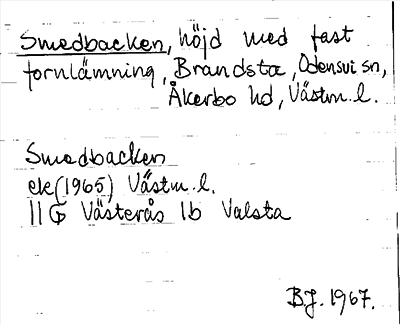 Smedbacken, höjd med fast
fornlämning, Brandsta, Odensvi sn,
Åkerbo hd, Västm.l.
Smedbacken
ek(1965) Västm.l.
11G Västerås 1b Valsta
B.J. 1967.